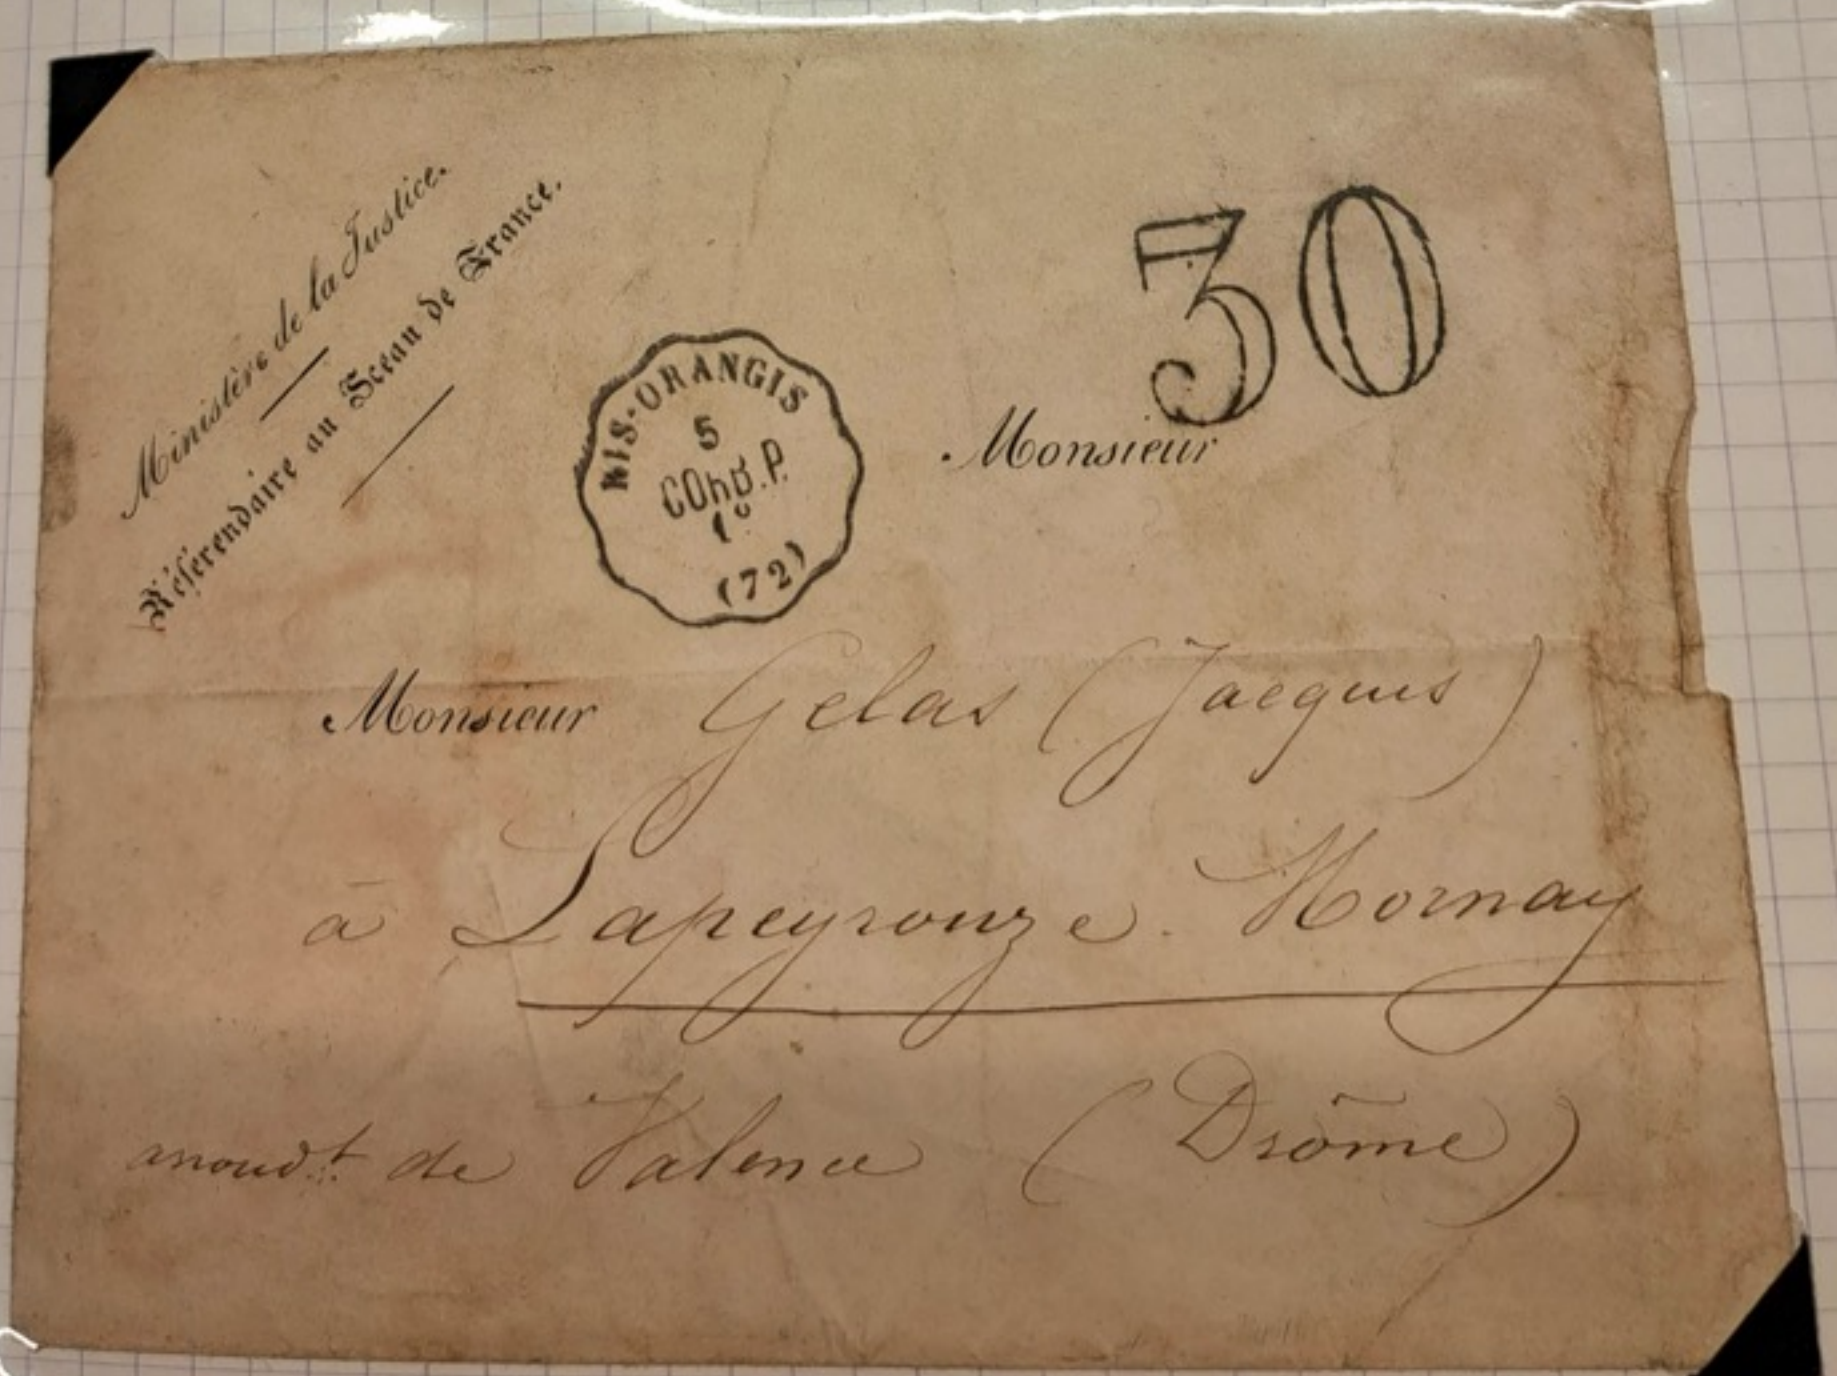 Ministère de la Justice.
Référendaire au Sceau de France.
30
RIS-ORANGIS
5
CORB.P.
1º
(72)
Monsieur
Monsieur Gelas (Jacques)
à Lapeyrouze. Mornay
arrond.t de Valence (Drôme)